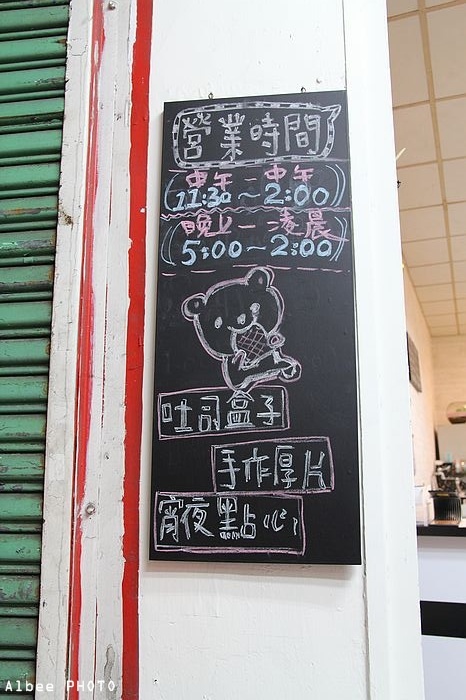 營業時間
中午-中午
11:30~2:00
晚上-凌晨
5:00~2:00
吐司盒子
手作厚片
宵夜點心
Albee PHOTO